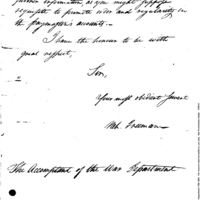 further information, as you might suppose
requisite to promote order and regularity in
the paymaster's accounts.—
I have the honour to be with
great respect,
Sir,
Your most obedient Servant
Freeman
The Accomptant of the War Department